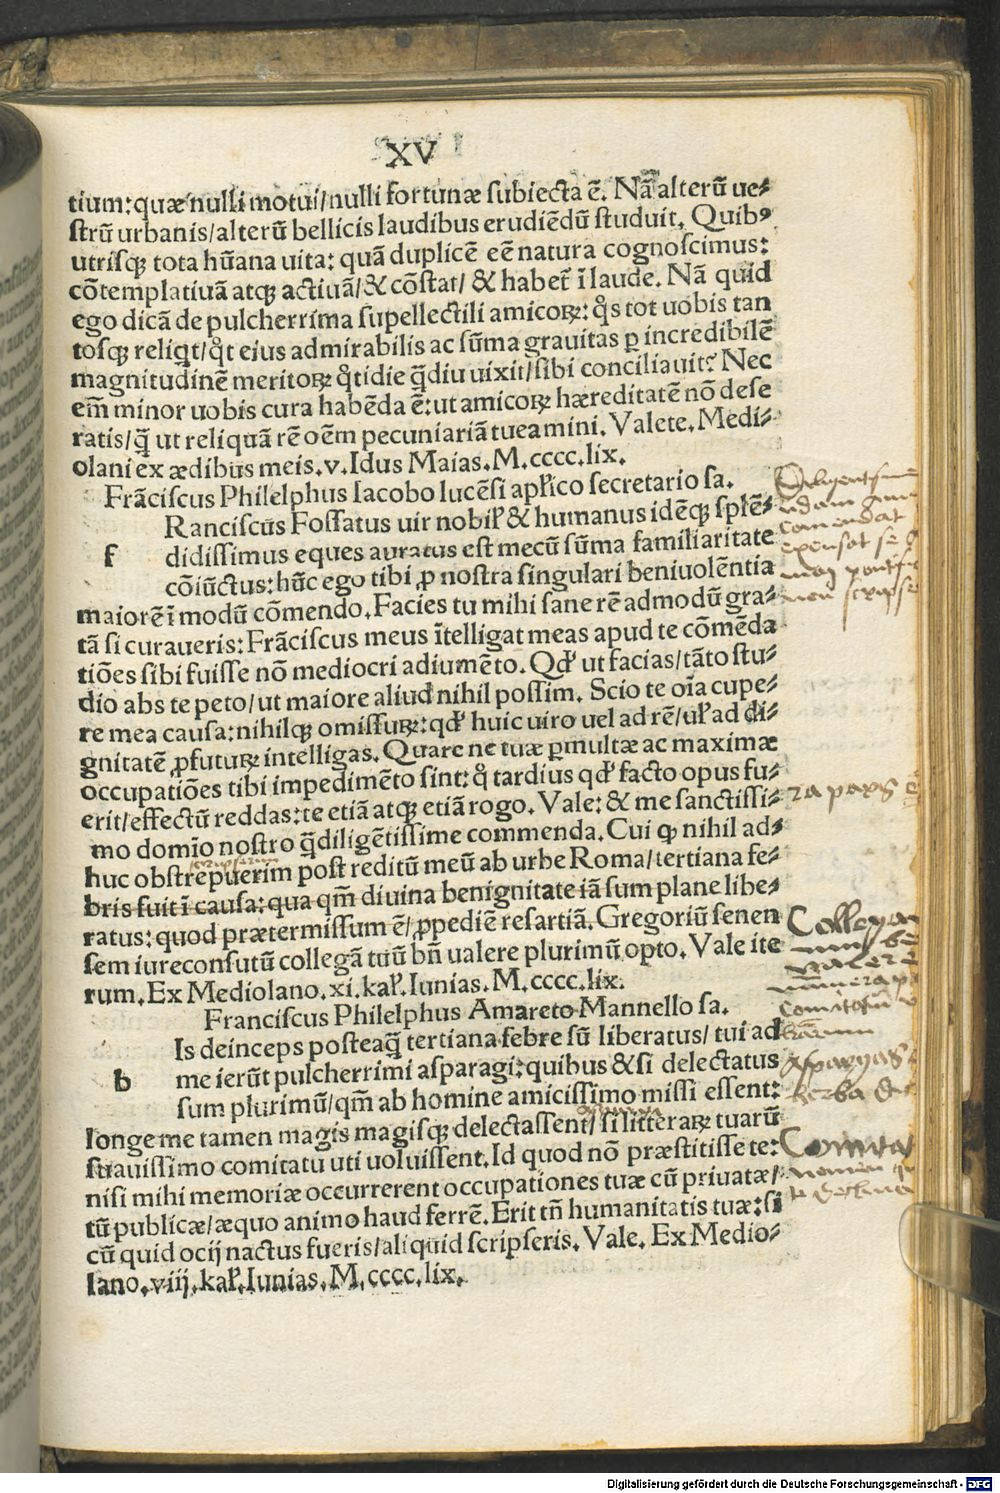 XV
tium: quæ nulli motui/nulli fortunæ subiecta ē. Nā alterū ue⸗
strū urbanis/alterū bellicis laudibus erudiēdū studuit. Quibꝰ
utrisqꝫ tota hūana uita: quā duplicē eē natura cognoscimus:
cōtemplatiuā atqꝫ actiuā/& cōstat/ & habet̄ ī laude. Nā quid
ego dicā de pulcherrima supellectili amicoꝝ: q̊s tot uobis tan
tosqꝫ reliqt/q̊t eius admirabilis ac sūma grauitas ꝑ incredibilē
magnitudinē meritoꝝ q̊tidie q̄diu uixit/sibi conciliauit? Nec
em̄ minor uobis cura habēda ē: ut amicoꝝ hæreditatē nō dese
ratis/q̄ ut reliquā rē oēm pecuniariā tueamini. Valete. Medi⸗
olani ex ædibus meis. v. Idus Maias. M. cccc. lix.
Frāciscus Philelphus Iacobo lucēsi apƚico secretario sa.
Ranciscus Fossatus uir nobiƚ & humanus idēqꝫ splē⸗
f didissimus eques auratus est mecū sūma familiaritate
cōiūctus: hūc ego tibi ꝓ nostra singulari beniuolentia
maiorē ī modū cōmendo. Facies tu mihi sane rē admodū gra⸗
tā si curaueris: Frāciscus meus ītelligat meas apud te cōmēda
tiōes sibi fuisse nō mediocri adiumēto. Qđ ut facias/tāto stu⸗
dio abs te peto/ut maiore aliud nihil possim. Scio te oīa cupe⸗
re mea causa: nihilqꝫ omissuꝝ: qđ huic uiro uel ad rē/uƚ ad di⸗
gnitatē ꝓfutuꝝ intelligas. Quare ne tuæ ꝑmultæ ac maximæ
occupatiōes tibi impedimēto sint: q̊ tardius qđ facto opus fu⸗
erit/effectū reddas: te etiā atqꝫ etiā rogo. Vale: & me sanctissi⸗
mo domīo nostro q̄diligētissime commenda. Cui ꝙ nihil ad⸗
huc obstrepuerim post reditū meū ab urbe Roma/tertiana fe⸗
bris fuit ī causa: qua qm̄ diuina benignitate iā sum plane libe⸗
ratus: quod prætermissum ē/ ꝓpediē resartiā. Gregoriū senen
sem iureconsutū collegā tuū bn̄ ualere plurimū opto. Vale ite
rum. Ex Mediolano. xi. kaƚ. Iunias. M. cccc. lix.
Franciscus Philelphus Amareto Mannello sa.
Is deinceps posteaq̄ tertiana febre sū liberatus/ tui ad
b me ierūt pulcherrimi asparagi: quibus & si delectatus
sum plurimū/qm̄ ab homine amicissimo missi essent:
longe me tamen magis magisqꝫ delectassent/ si litteraꝝ tuarū
suauissimo comitatu uti uoluissent. Id quod nō præstitisse te:
nisi mihi memoriæ occurrerent occupationes tuæ cū priuatæ/
tū publicæ/æquo animo haud ferrē. Erit tn̄ humanitatis tuæ: si
cū quid ocij nactus fueris/aliquid scripseris. Vale. Ex Medio⸗
lano. viij. kaƚ. Iunias. M. cccc. lix.
comendat
Asparagus
herba
Digitalisierung gefördert durch die Deutsche Forschungsgemeinschaft - DFG